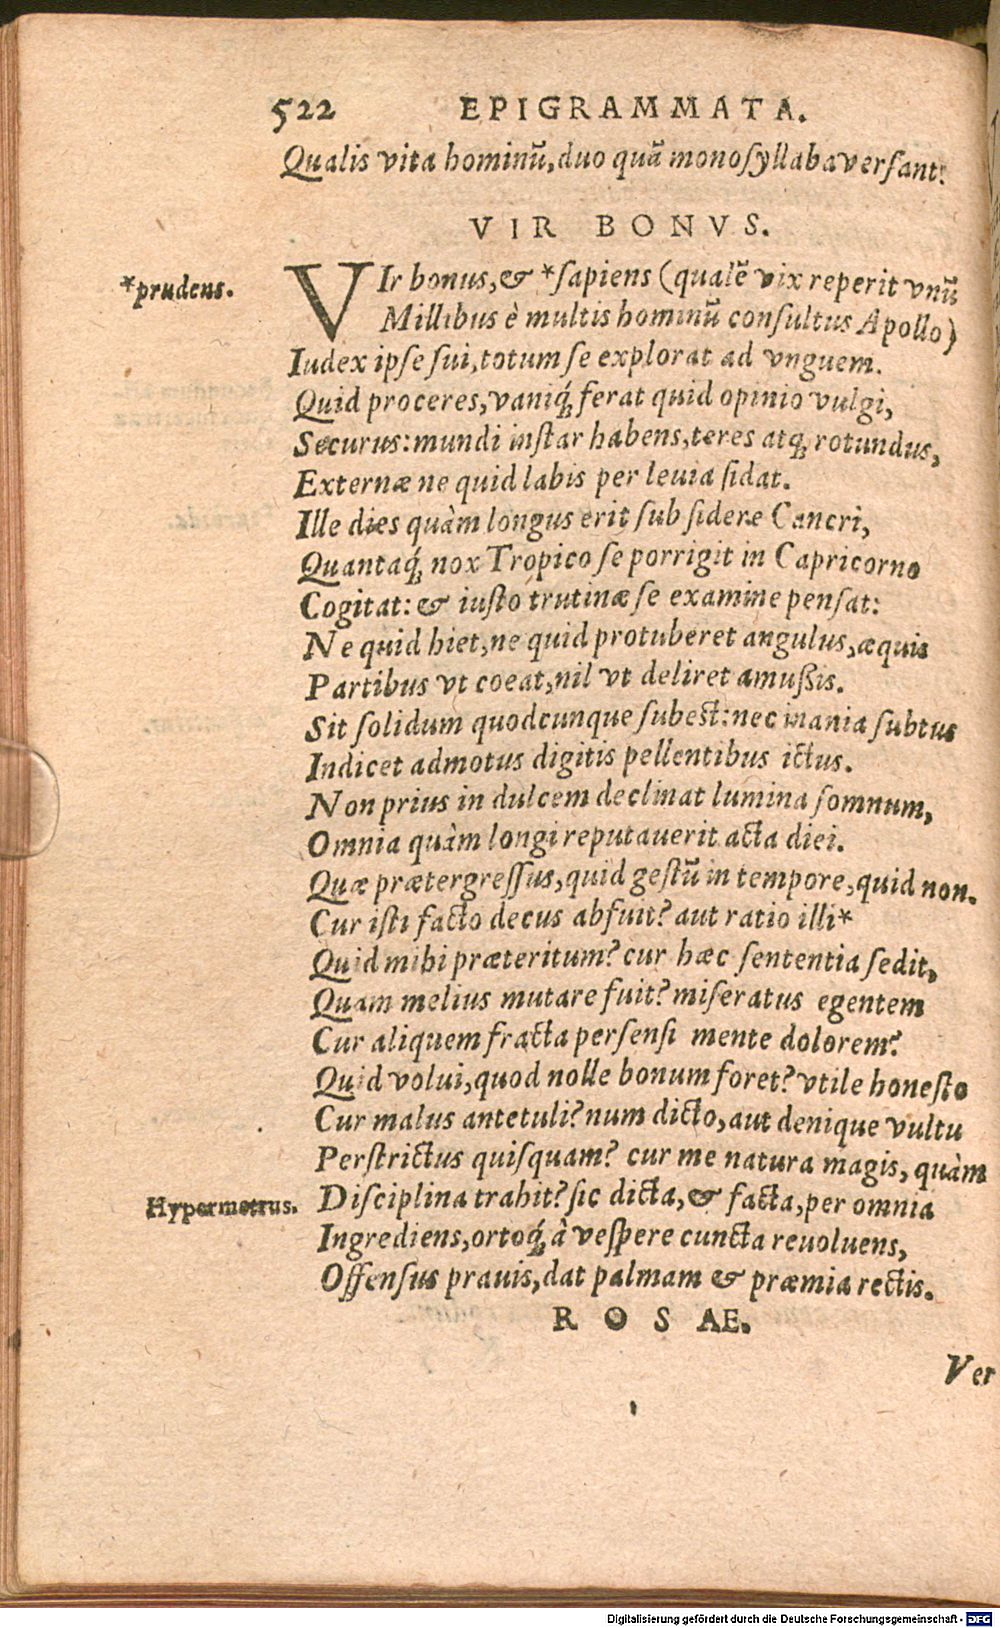 522 EPIGRAMMATA.
Qualis vita hominū, duo quā monosyllaba versant!
VIR BONVS.
*prudens.
VIr bonus, & *sapiens (qualē vix reperit vnū
Millibus è multis hominū consultus Apollo)
Iudex ipse sui, totum se explorat ad vnguem.
Quid proceres, vaniq́; ferat quid opinio vulgi,
Securus: mundi instar habens, teres atq; rotundus,
Externæ ne quid labis per leuia sidat.
Ille dies quàm longus erit sub sidere Cancri,
Quantaq́; nox Tropico se porrigit in Capricorno
Cogitat: & iusto trutinæ se examine pensat:
Ne quid hiet, ne quid protuberet angulus, æquis
Partibus vt coeat, nil vt deliret amußis.
Sit solidum quodcunque subest: nec inania subtus
Indicet admotus digitis pellentibus ictus.
Non prius in dulcem declinat lumina somnum,
Omnia quàm longi reputauerit acta diei.
Quæ prætergressus, quid gestū in tempore, quid non.
Cur isti facto decus abfuit? aut ratio illi*
Quid mihi præteritum? cur hæc sententia sedit,
Quam melius mutare fuit? miseratus egentem
Cur aliquem fracta persensi mente dolorem?
Quid volui, quod nolle bonum foret? vtile honesto
Cur malus antetuli? num dicto, aut denique vultu
Perstrictus quisquam? cur me natura magis, quàm
Hypermetrus.
Disciplina trahit? sic dicta, & facta, per omnia
Ingrediens, ortoq́; à vespere cuncta reuoluens,
Offensus prauis, dat palmam & præmia rectis.
ROSAE.
Ver
Digitalisierung gefördert durch die Deutsche Forschungsgemeinschaft - DFG